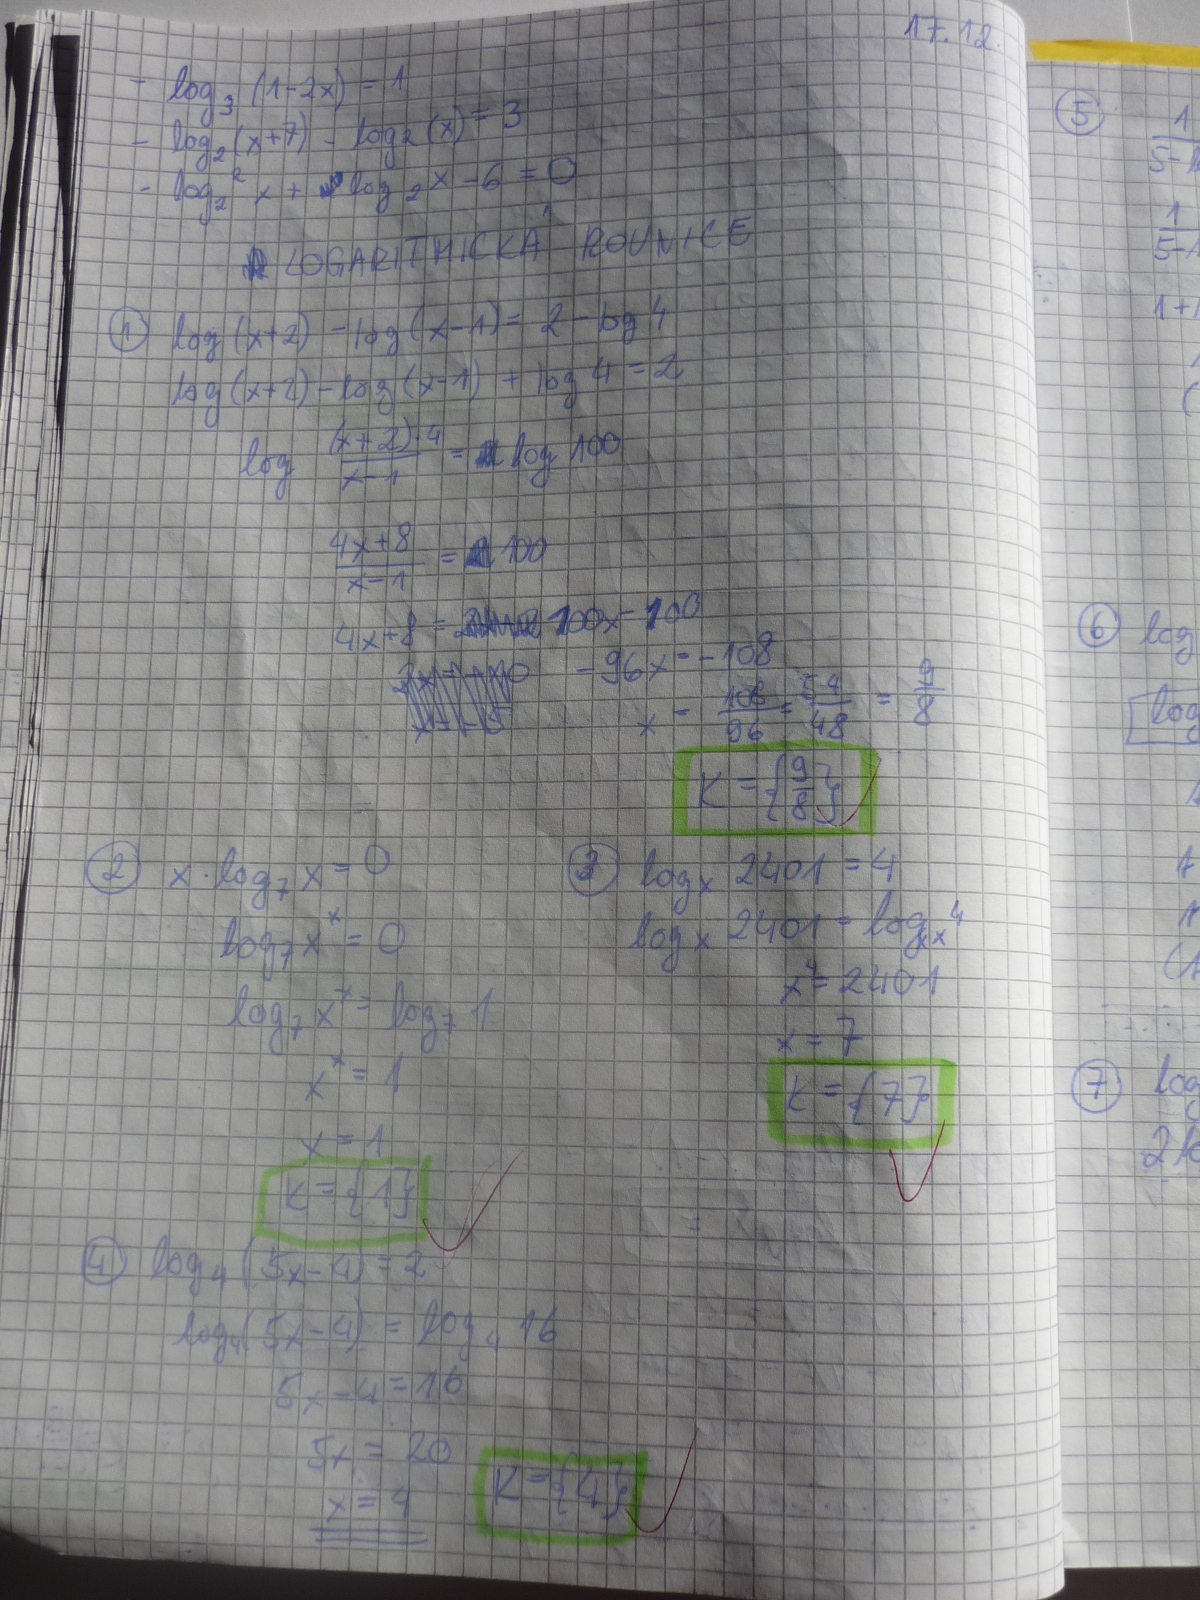 17.12.
- log₃ (1-2x) = 1
- log₂ (x+7) - log₂ (x) = 3
- log₂² x + log₂ x - 6 = 0
LOGARITMICKÁ ROVNICE
① log (x+2) - log (x-1) = 2 - log 4
log (x+2) - log (x-1) + log 4 = 2
log (x+2)·4 / x-1 = log 100
4x+8 / x-1 = 100
4x+8 = 100x - 100
-96x = -108
x = 108/96 = 54/48 = 9/8
K = {9/8}
② x·log₇ x = 0
log₇ xˣ = 0
log₇ xˣ = log₇ 1
xˣ = 1
x = 1
K = {1}
③ logₓ 2401 = 4
logₓ 2401 = logₓ x⁴
x⁴ = 2401
x = 7
K = {7}
④ log₄ (5x-4) = 2
log₄ (5x-4) = log₄ 16
5x-4 = 16
5x = 20
x = 4
K = {4}
⑤ 1
5-
1
5-
1+
⑥ log
log
⑦ log
2